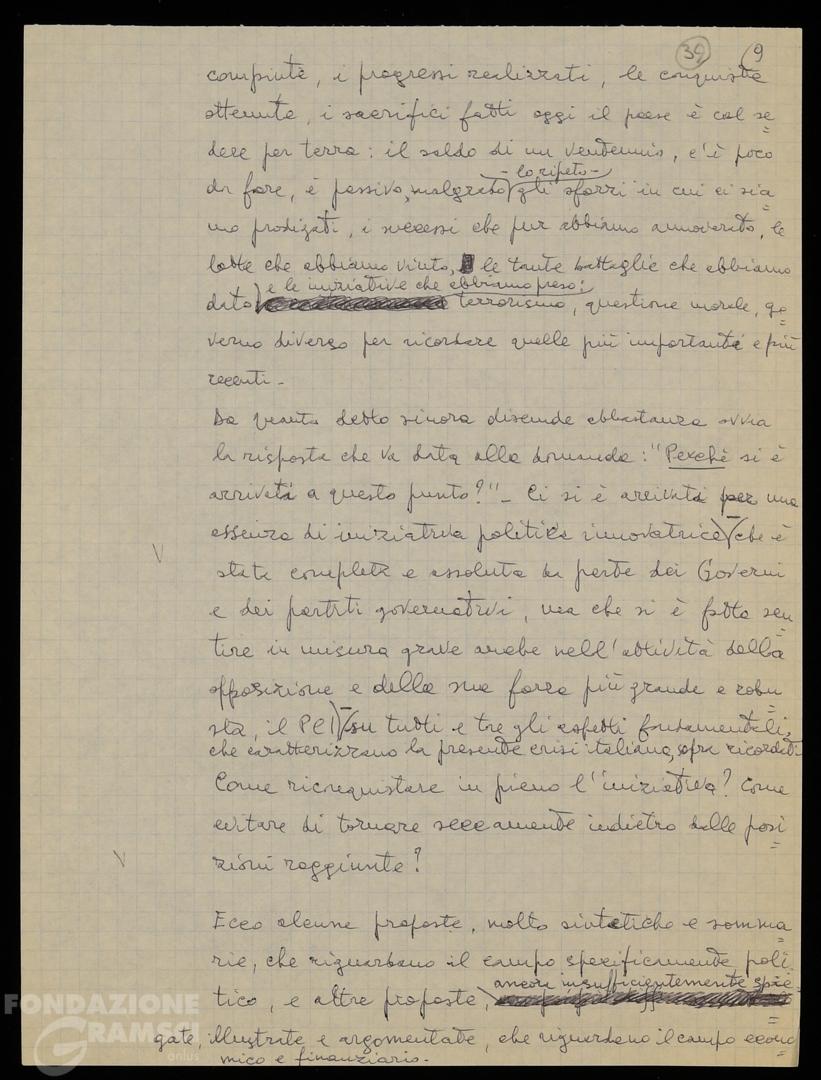 39 9
compiute, i progressi realizzati, le conquiste
ottenute, i sacrifici fatti oggi il paese è col se
dere per terra: il saldo di un ventennio, c'è poco
- lo ripeto -
da fare, è passivo, malgrado gli sforzi in cui ci sia
mo prodigati, i successi che pur abbiamo annoverato, le
lotte che abbiamo vinto, le tante battaglie che abbiamo
e le iniziative che abbiamo preso:
dato terrorismo, questione morale, go
verno diverso per ricordare quelle più importanti e più
recenti -
Da quanto detto sinora discende abbastanza ovvia
la risposta che va data alla domanda: "Perchè si è
arrivati a questo punto?" - Ci si è arrivati per una
assenza di iniziativa politica innovatrice - che è
stata completa e assoluta da parte dei Governi
e dei partiti governativi, ma che si è fatta sen
tire in misura grave anche nell'attività della
opposizione e della sua forza più grande e robu
sta, il PCI - su tutti e tre gli aspetti fondamentali,
che caratterizzano la presente crisi italiana, sopra ricordati
Come riconquistare in pieno l'iniziativa? Come
evitare di tornare seccamente indietro dalle posi
zioni raggiunte?
Ecco alcune proposte, molto sintetiche e somma
rie, che riguardano il campo specificamente poli
ancora insufficientemente spie
tico, e altre proposte,
gate, illustrate e argomentate, che riguardano il campo econo
mico e finanziario. -
FONDAZIONE
GRAMSCI
onlus